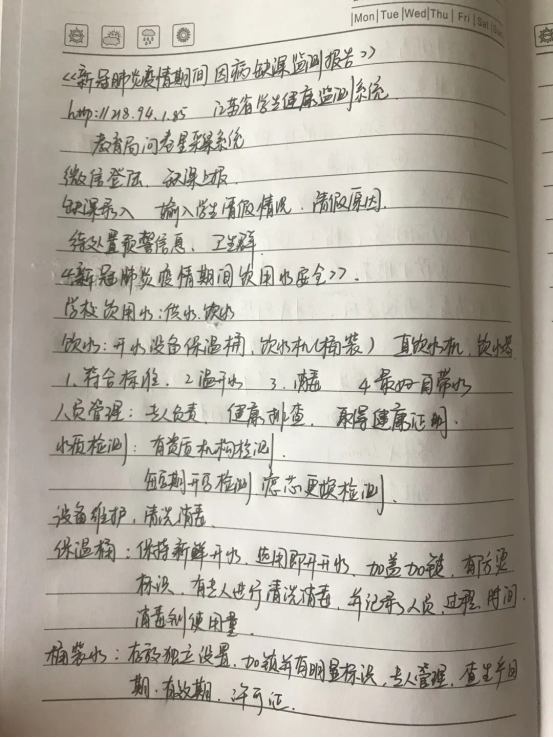 Mon Tue Wed Thu Fri Sat Sun
<<新冠肺炎疫情期间因病缺课监测报告>>
http://218.94.1.85 江苏省学生健康监测系统
教育局问卷星采集系统
微信登陆，缺课上报
缺课录入 输入学生请假情况，请假原因
待处置预警信息，卫生群
<<新冠肺炎疫情期间饮用水安全>>.
学校饮用水：供水、饮水
饮水：开水设备保温桶，饮水机(桶装) 直饮水机，饮水器
1、符合标准，2 温开水 3、消毒 4 最好自带水
人员管理：专人负责，健康排查，取得健康证明.
水质检测：有资质机构检测.
每学期开学检测，滤芯更换检测.
设备维护，清洗消毒
保温桶：保持新鲜开水，选用即开开水，加盖加锁，有防烫
标识，有专人进行清洗消毒，并记录人员，过程，时间.
消毒剂使用量.
桶装水：存放独立设置，加锁并有明显标识，专人管理，查生产日
期，有效期，许可证.